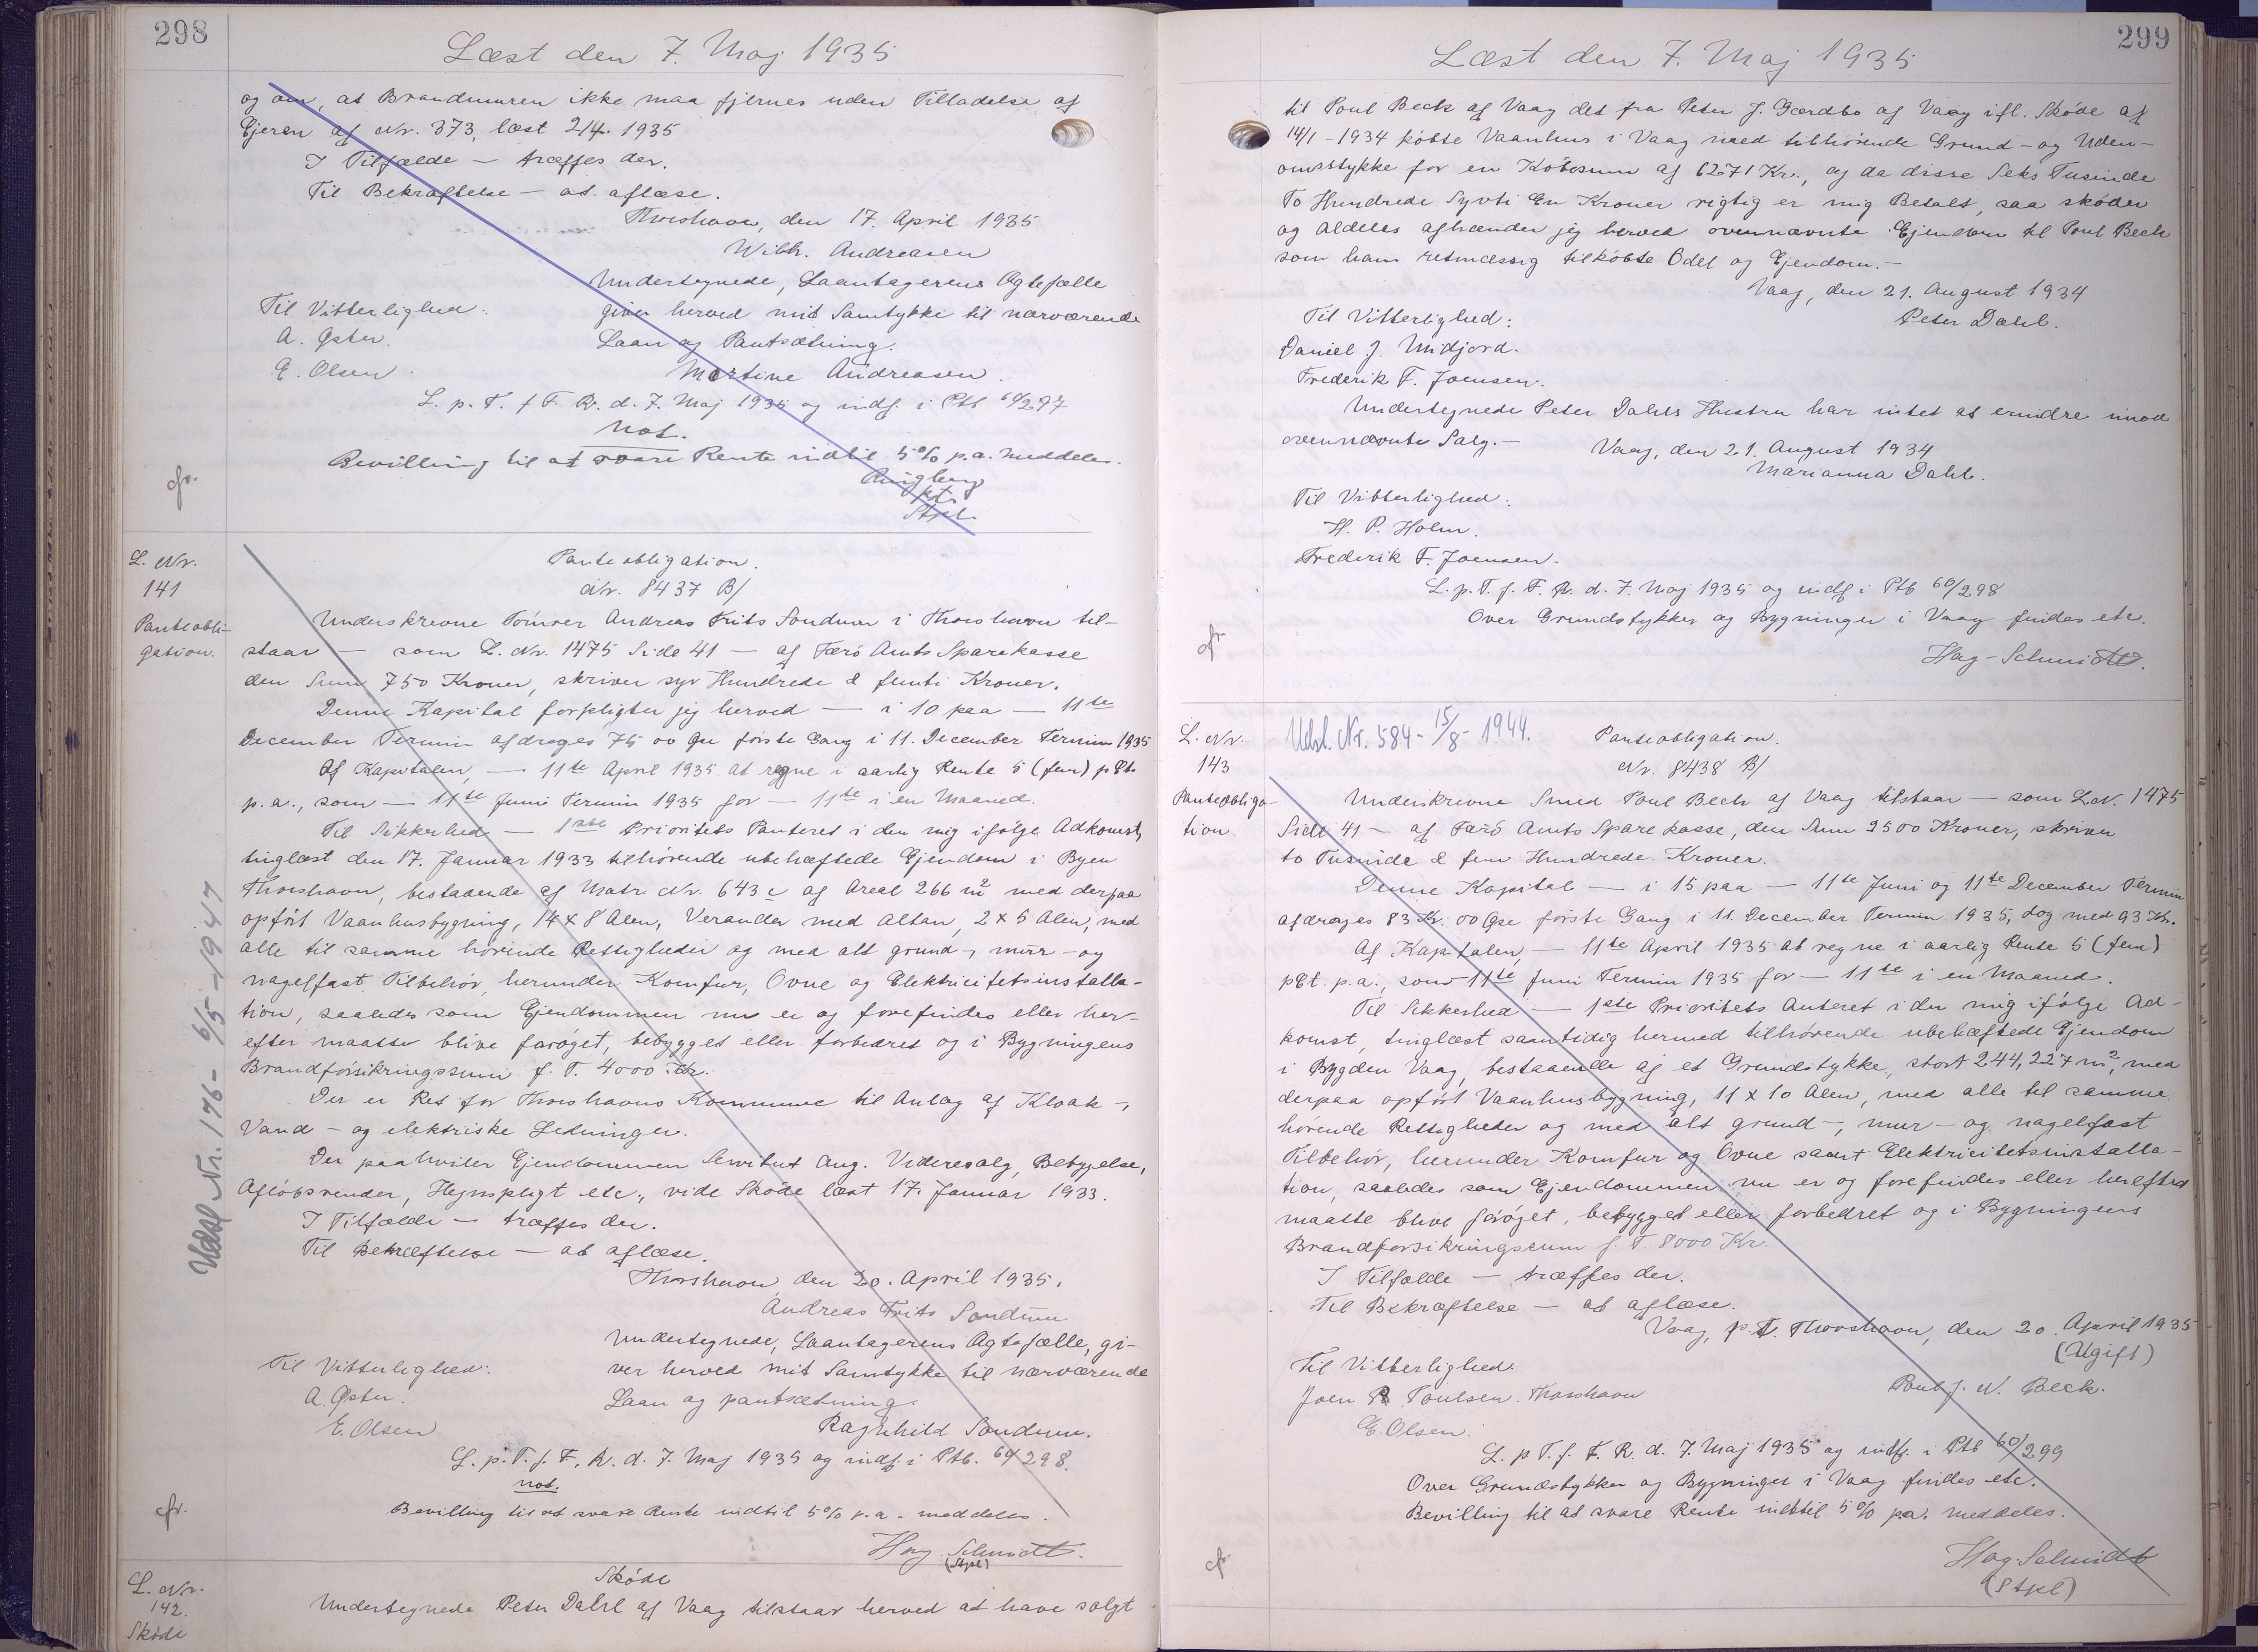 298
Læst den 7. Maj 1935
og om, at Brandmuren ikke maa fjernes uden Tilladelse af
Ejeren af Nr. 373, læst 2/4. 1935
I Tilfælde — træffes der.
Til Bekræftelse — at aflæse.
Thorshavn, den 17. April 1935
Wilh. Andreasen
Undertegnede, Laantagerens Ægtefælle
Til Vitterlighed: giver herved mit Samtykke til nærværende
A. Øster. Laan og Pantsætning.
E. Olsen. Martine Andreasen.
L. p. T. f. F. R. d. 7. Maj 1935 og indf. i Ptb 60/297
not.
Bevilling til at svare Rente indtil 5% p.a. meddeles.
cfr.
kst.
Stpl.
L. Nr.
141
Panteobli-
gation.
Panteobligation.
Nr. 8437 B/
Underskrevne Tømrer Andreas Frits Sondum i Thorshavn til-
staar — som L. Nr. 1475 Side 41 — af Færø Amts Sparekasse
den Sum 750 Kroner, skriver syv Hundrede & femti Kroner.
Denne Kapital forpligter jeg herved — i 10 paa — 11te
December Termin afdrages 75 00 Øre første Gang i 11. December Termin 1935
Af Kapitalen, — 11te April 1935 at regne i aarlig Rente 5 (fem) pCt.
p.a., som — 11te Juni Termin 1935 for — 11te i en Maaned.
Til Sikkerhed — 1ste Prioritets Panteret i den mig ifølge Adkomst,
tinglæst den 17. Januar 1933 tilhørende ubehæftede Ejendom i Byen
Thorshavn, bestaaende af Matr. Nr. 643 c af Areal 266 m² med derpaa
opført Vaanhusbygning, 14 x 8 Alen, Veranda med Altan, 2 x 5 Alen, med
alle til samme hørende Rettigheder og med alt grund-, mur- og
nagelfast Tilbehør, herunder Komfur, Ovne og Elektricitetsinstalla-
tion, saaledes som Ejendommen nu er og forefindes eller her-
efter maatte blive forøget, bebygget eller forbedret og i Bygningens
Brandforsikringssum f. T. 4000 Kr.
Der er Ret for Thorshavns Kommune til Anlæg af Kloak-,
Vand- og elektriske Ledninger.
Der paahviler Ejendommen Servitut ang. Videresalg, Bebygelse,
Afløbsrender, Hegnspligt etc., vide Skøde læst 17. Januar 1933.
I Tilfælde — træffes der.
Til Bekræftelse — at aflæse.
Thorshavn, den 20. April 1935.
Andreas Frits Sondum
Undertegnede, Laantagerens Ægtefælle, gi-
Til Vitterlighed: ver herved mit Samtykke til nærværende
A. Øster. Laan og pantsætning.
E. Olsen. Ragnhild Sondum.
L. p. T. f. F. R. d. 7. Maj 1935 og indf. i Ptb. 60/298.
not.
Bevilling til at svare Rente indtil 5% p.a. meddeles.
cfr.
Hag-Schmidt.
(Stpl)
Udsl Nr. 176 - 6/5 - 1947
L. Nr.
142.
Skøde
Skøde
Undertegnede Peter Dahl af Vaag tilstaar herved at have solgt
299
Læst den 7. Maj 1935
til Poul Beck af Vaag det fra Peter J. Gærdbo af Vaag ifl. Skøde af
14/1 - 1934 købte Vaanhus i Vaag med tilhørende Grund- og Uden-
omsstykke for en Købesum af 6271 Kr., og da disse Seks Tusinde
To Hundrede Syvti En Kroner rigtig er mig Betalt, saa skøder
og aldeles afhænder jeg herved ovennævnte Ejendom til Poul Beck
som ham retmæssig tilkøbte Odel og Ejendom. —
Vaag, den 21. August 1934
Til Vitterlighed: Peter Dahl.
Daniel J. Midjord.
Frederik F. Joensen.
Undertegnede Peter Dahls Hustru har intet at erindre imod
ovennævnte Salg. — Vaag, den 21. August 1934
Marianna Dahl.
Til Vitterlighed:
H. P. Holm.
Frederik F. Joensen.
L. p. T. f. F. R. d. 7. Maj 1935 og indf. i Ptb 60/298
Over Grundstykker og Bygninger i Vaag findes etc.
cfr.
Hag-Schmidt.
L. Nr.
143
Panteobliga-
tion.
Udsl. Nr. 584 - 15/8 - 1944.
Panteobligation.
Nr. 8438 B/
Underskrevne Smed Poul Beck af Vaag tilstaar — som L.N. 1475
Side 41 — af Færø Amts Sparekasse, den Sum 2500 Kroner, skriver
to Tusinde & fem Hundrede Kroner.
Denne Kapital — i 15 paa — 11te Juni og 11te December Termin
afdrages 83 Kr. 00 Øre første Gang i 11. December Termin 1935, dog med 93 Kr.
Af Kapitalen, — 11te April 1935 at regne i aarlig Rente 5 (fem)
pCt. p.a., som — 11te Juni Termin 1935 for — 11te i en Maaned.
Til Sikkerhed — 1ste Prioritets Anteret i den mig ifølge Ad-
komst, tinglæst samtidig hermed tilhørende ubehæftede Ejendom
i Bygden Vaag, bestaaende af et Grundstykke, stort 244,227 m², med
derpaa opført Vaanhusbygning, 11 x 10 Alen, med alle til samme
hørende Rettigheder og med alt grund-, mur- og nagelfast
Tilbehør, herunder Komfur og Ovne samt Elektricitetsinstalla-
tion, saaledes som Ejendommen nu er og forefindes eller herefter
maatte blive forøget, bebygget eller forbedret og i Bygningens
Brandforsikringssum f. T. 8000 Kr.
I Tilfælde — træffes der.
Til Bekræftelse — at aflæse.
Vaag, p.t. Thorshavn, den 20. April 1935
(Ugift)
Til Vitterlighed: Poul J. N. Beck.
Joen P. Poulsen. Thorshavn
E. Olsen.
L. p. T. f. F. R. d. 7. Maj 1935 og indf. i Ptb 60/299
Over Grundstykker og Bygninger i Vaag findes etc.
Bevilling til at svare Rente indtil 5% p.a. meddeles.
cfr.
Hag-Schmidt
(Stpl)